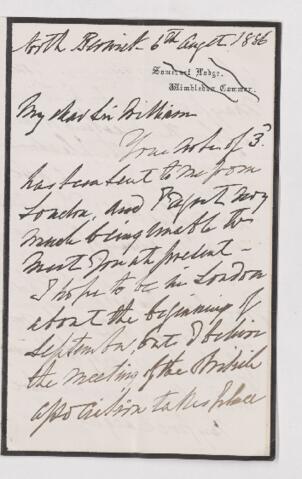 North Berwick 6th Augt. 1886
Somerset Lodge,
Wimbledon Common.
My dear Sir William
Your note of 3d.
has been sent to me from
London, and I regret very
much being unable to
meet you at present -
I hope to be in London
about the beginning of
September, but I believe
the meeting of the British
association takes place